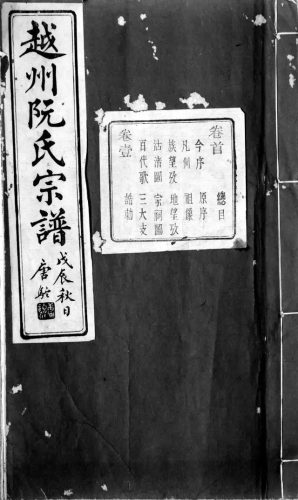 越州阮氏宗譜
戊辰秋日
唐駝
卷首 總目
今序 原序
凡例 祖像
族望攷 地望攷
沽清圖 宗祠圖
百代歌 三大支
卷壹 誥勅